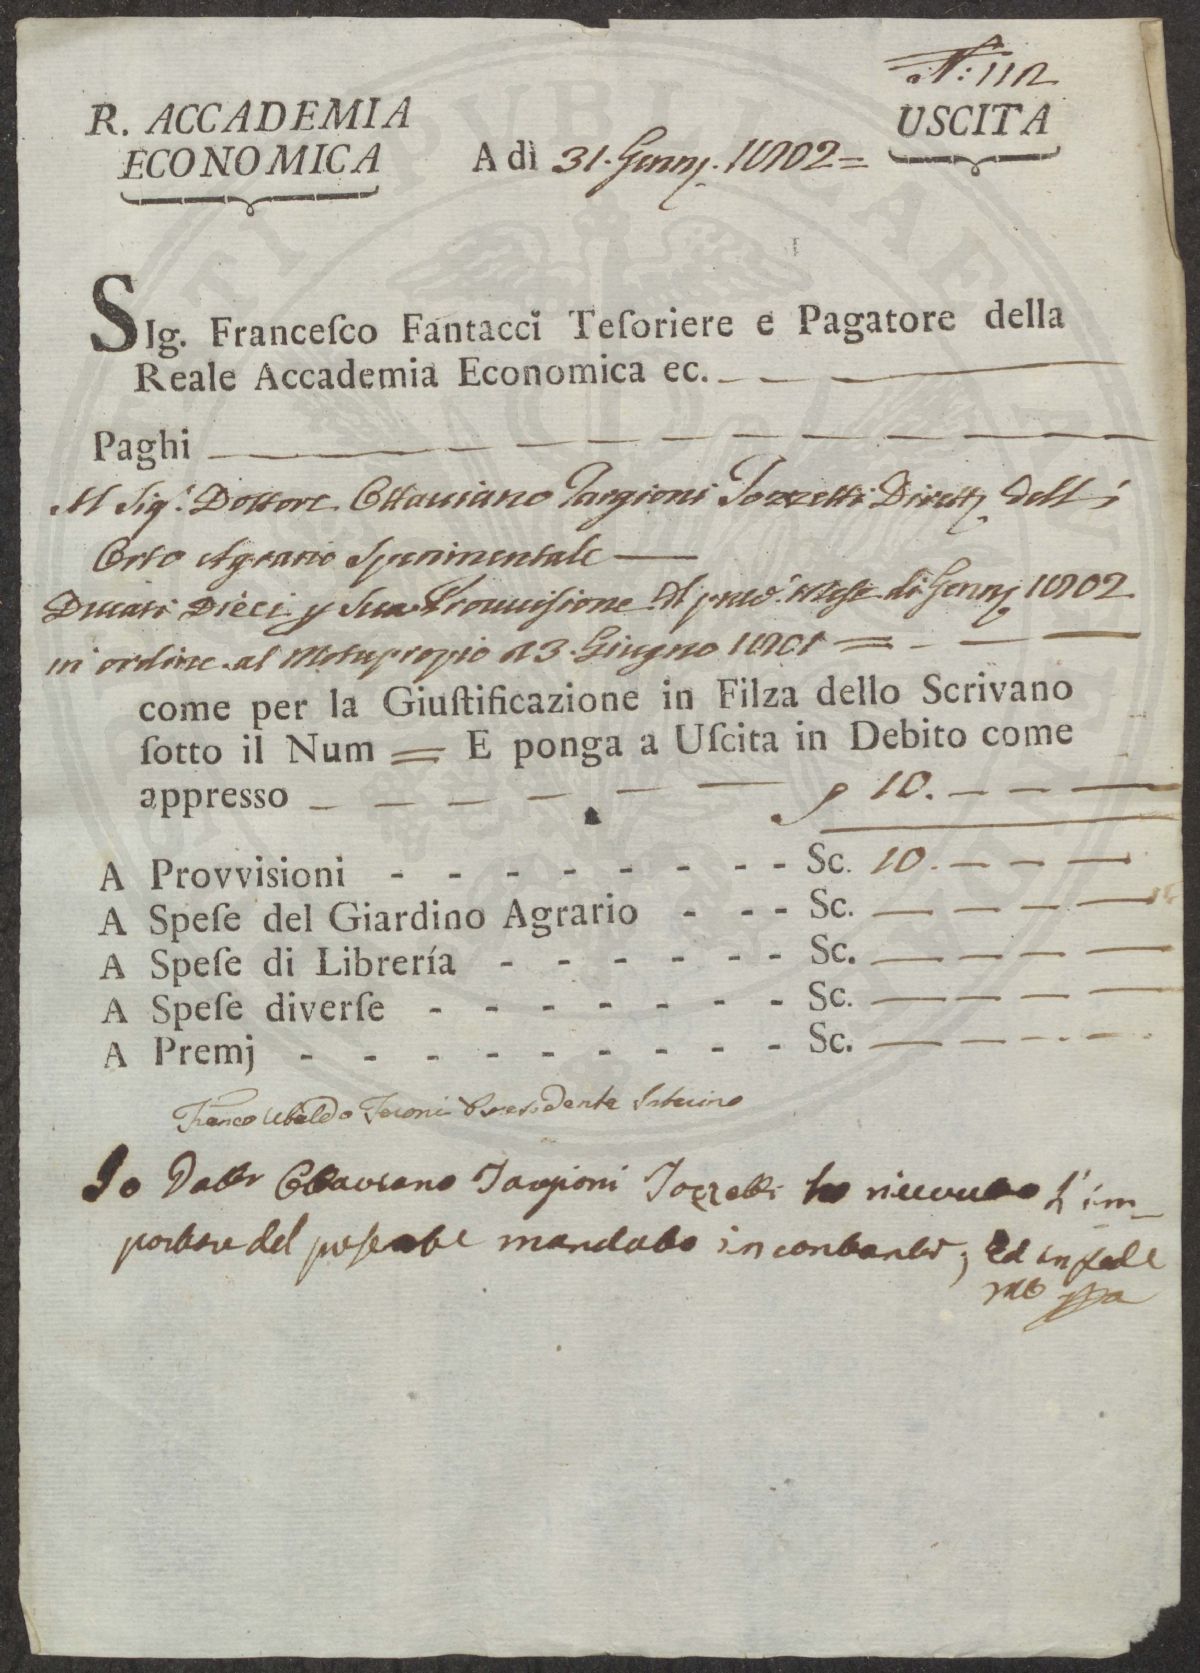 N: 112
R. ACCADEMIA
ECONOMICA
A dì 31. Genn. 1802 =
USCITA
SIg. Franceſco Fantacci Teſoriere e Pagatore della
Reale Accademia Economica ec.
Paghi
Al Sig.r Dottore Ottaviano Targioni Tozzetti Dirett. dell'
Orto Agrario Sperimentale
Ducati Dieci p Sua Provvisione d pnte Mese di Genn. 1802
in ordine al Motuproprio d 3. Giugno 1801 =
come per la Giuſtificazione in Filza dello Scrivano
ſotto il Num = E ponga a Uſcita in Debito come
appresso 10.
A Provvisioni - - - - - - - - Sc. 10.
A Speſe del Giardino Agrario - - - Sc.
A Speſe di Librería - - - - - - Sc.
A Speſe diverſe - - - - - - - Sc.
A Premj - - - - - - - - - Sc.
Franco Ubaldo Feroni Presidente Interino
Io Dottr Ottaviano Targioni Tozzetti ho ricevuto l'im-
portare del presente mandato in contanti, ed in fede
mo ppa